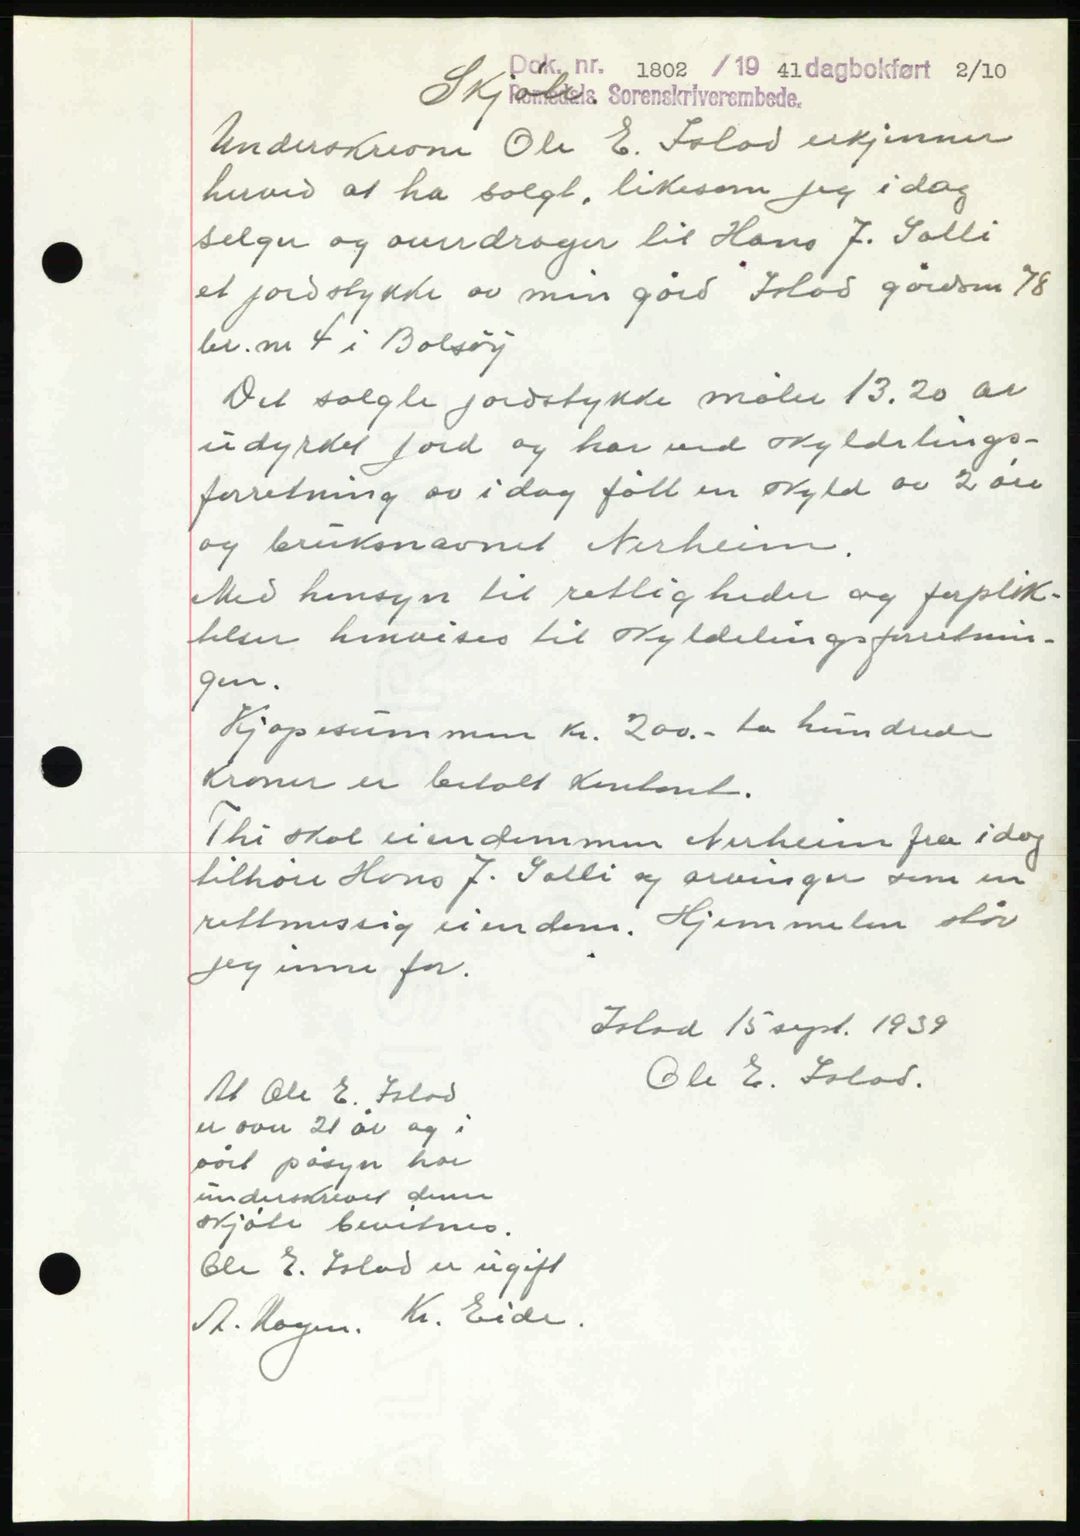 Dok. nr. 1802 / 19 41 dagbokført 2/10
Romsdals Sorenskriverembede.
Skjøte.
Underskrevne Ole E. Islad erkjenner
herved at ha solgt, likesom jeg i dag
selger og overdrager til Hans J. Solli
et jordstykke av min gård Islad gårdsnr 78
br. nr 4 i Bolsøy
Det solgte jordstykke måler 13.20 ar
udyrket jord og har ved skyldelings-
forretning av i dag fått en skyld av 2 øre
og bruksnavnet Nerheim.
Med hensyn til rettigheder og forplik-
telser henvises til skyldelingsforretnin-
gen.
Kjøpesummen kr. 200.- to hundrede
kroner er betalt kontant.
Thi skal eiendommen Nerheim fra i dag
tilhøre Hans J. Solli og arvinger som en
rettmessig eiendom. Hjemmelen står
jeg inne for.
Islad 15 sept. 1939
Ole E. Islad.
At Ole E. Islad
er over 21 år og i
vårt påsyn har
underskrevet dette
skjøte bevitnes.
Ole E. Islad er ugift
Kr. Eide.